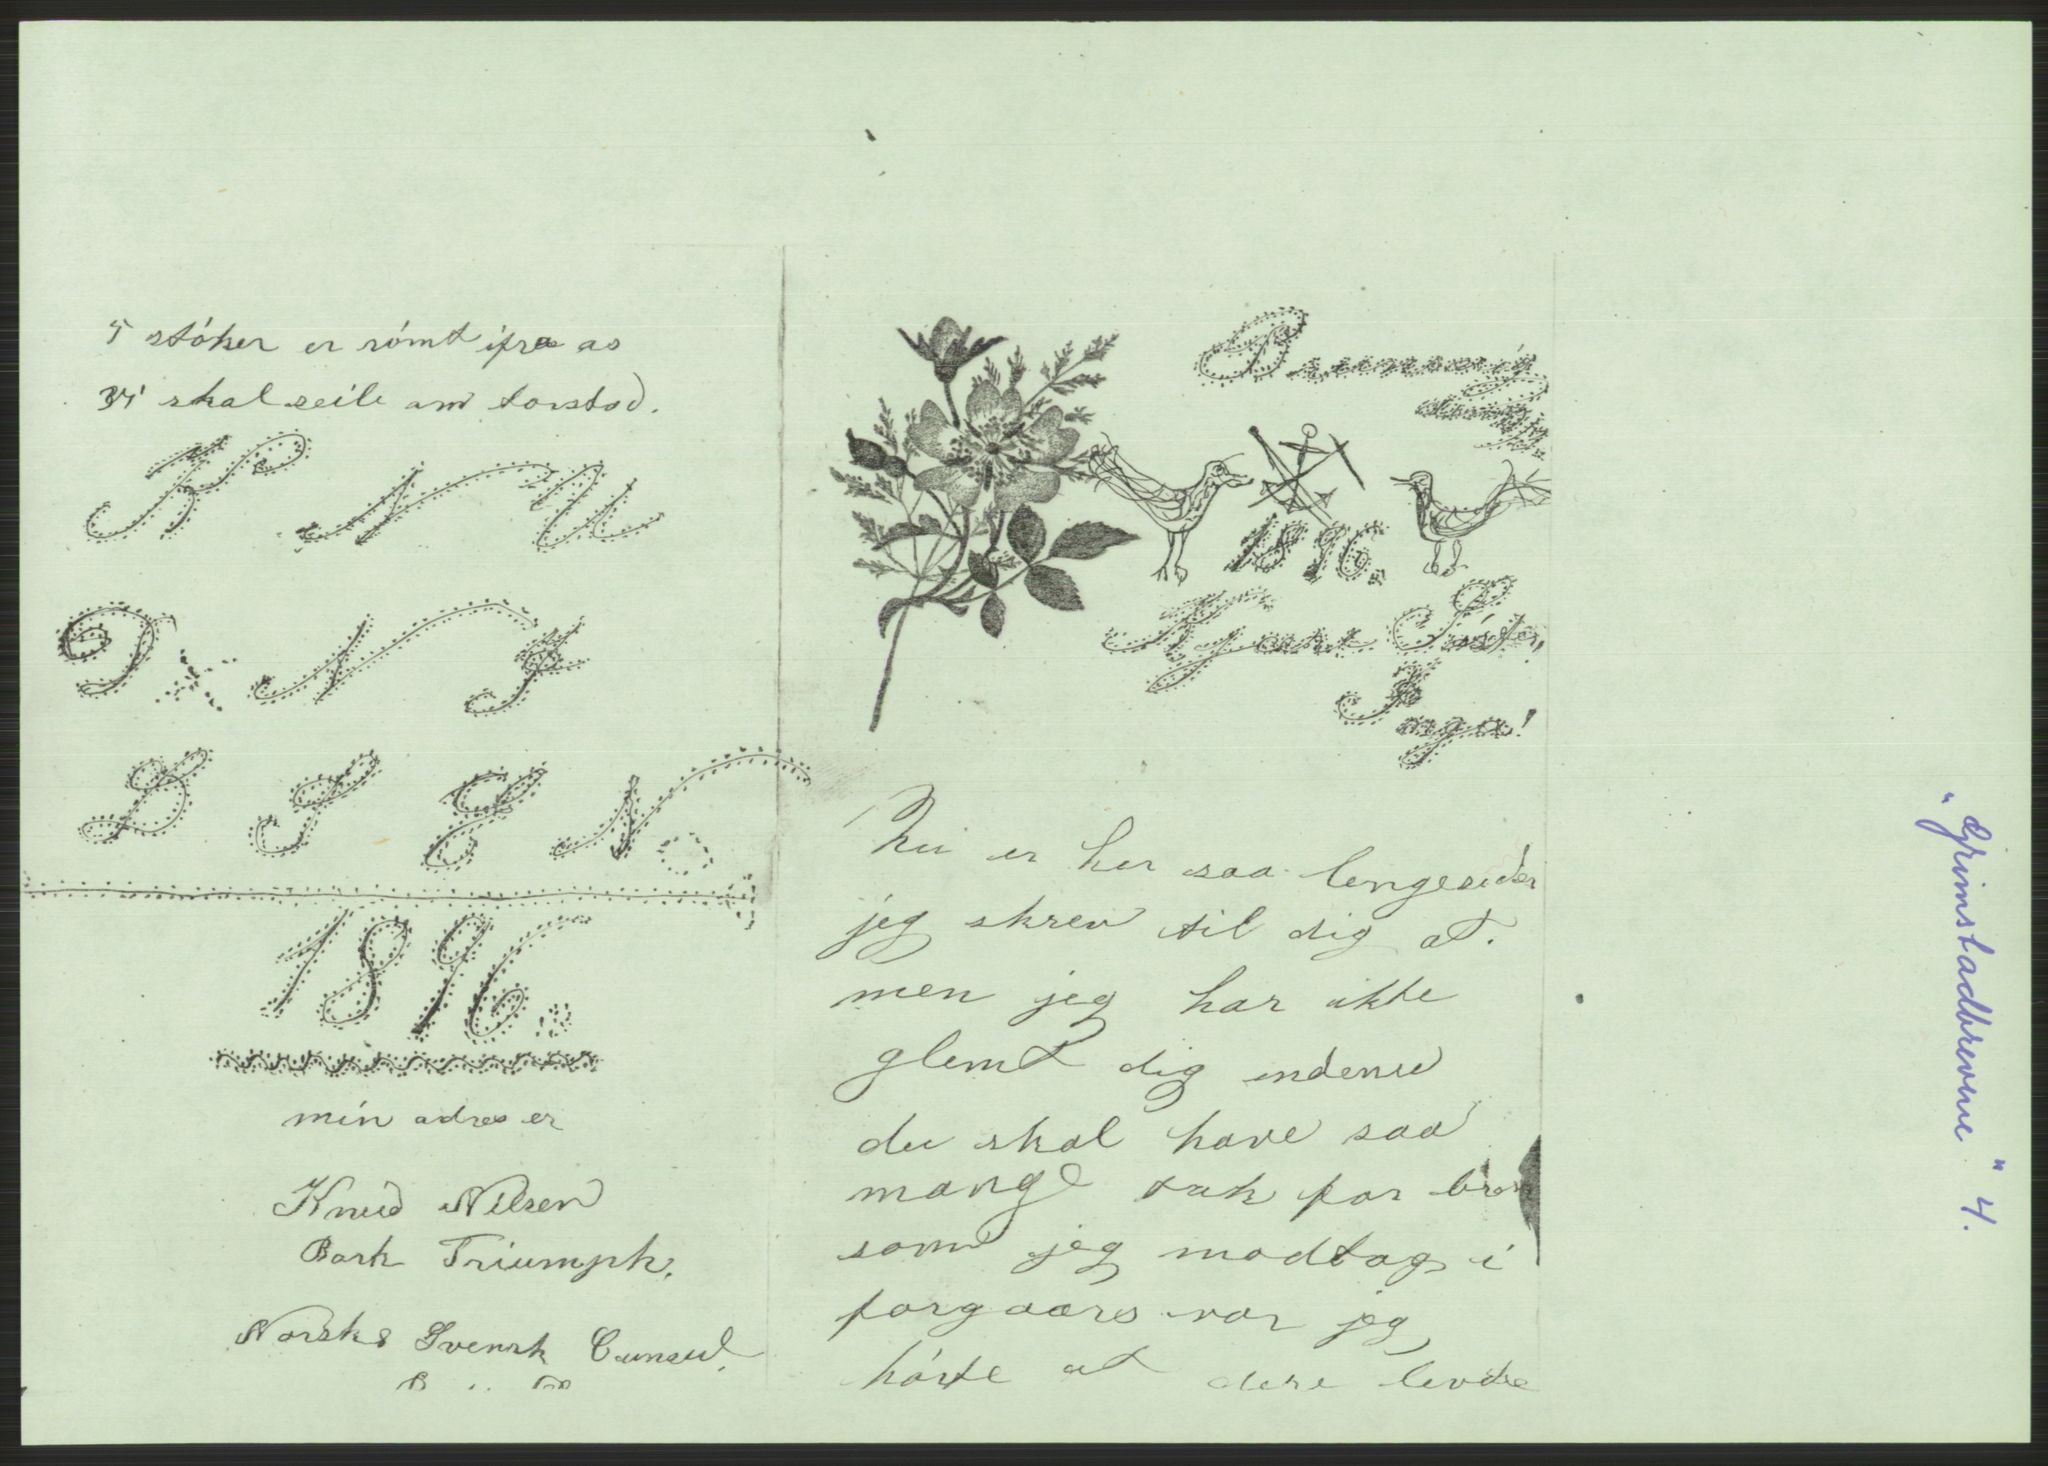 5 stóker er rómt ifra as
vi skal seile am torstad.
K N N
D N J
B S E N.
1896.
min adres er
Knud Nilsen
Bark Triumph.
Norsk & Svensk Cunsul.
1896.
Kjære Sóster,
Inga!
Nu er her saa lenge siden
jeg skrev til dig at.
men jeg har ikke
glemt dig endenu
du skal have saa
mange tak for brev
som jeg modtog i
forgaars vor jeg
hórte at dere levde
"Grimstadbrevne" 4.